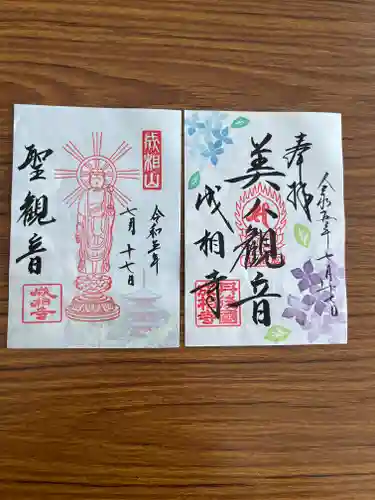 成相山
令和五年
七月十七日
聖観音
成相寺
奉拝
令和五年七月十七日
美人観音
成相寺